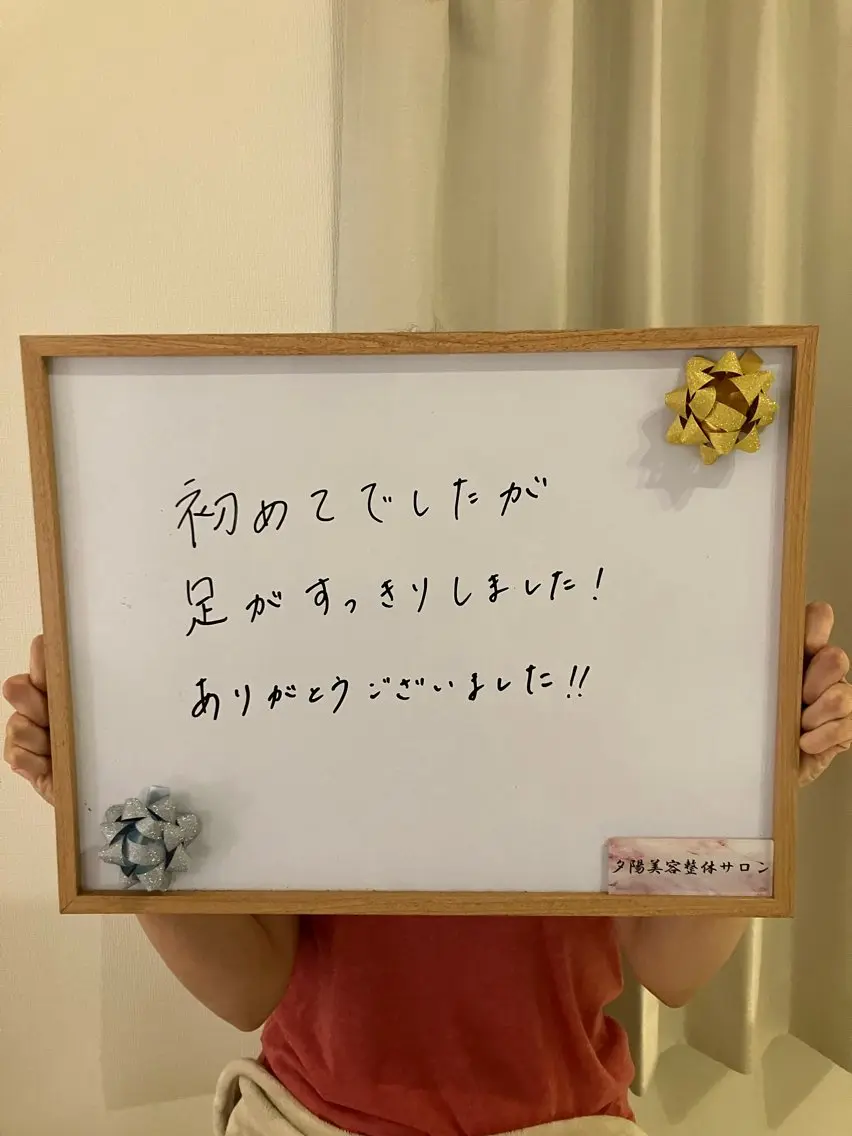 初めてでしたが
足がすっきりしました！
ありがとうございました!!
夕陽美容整体サロン